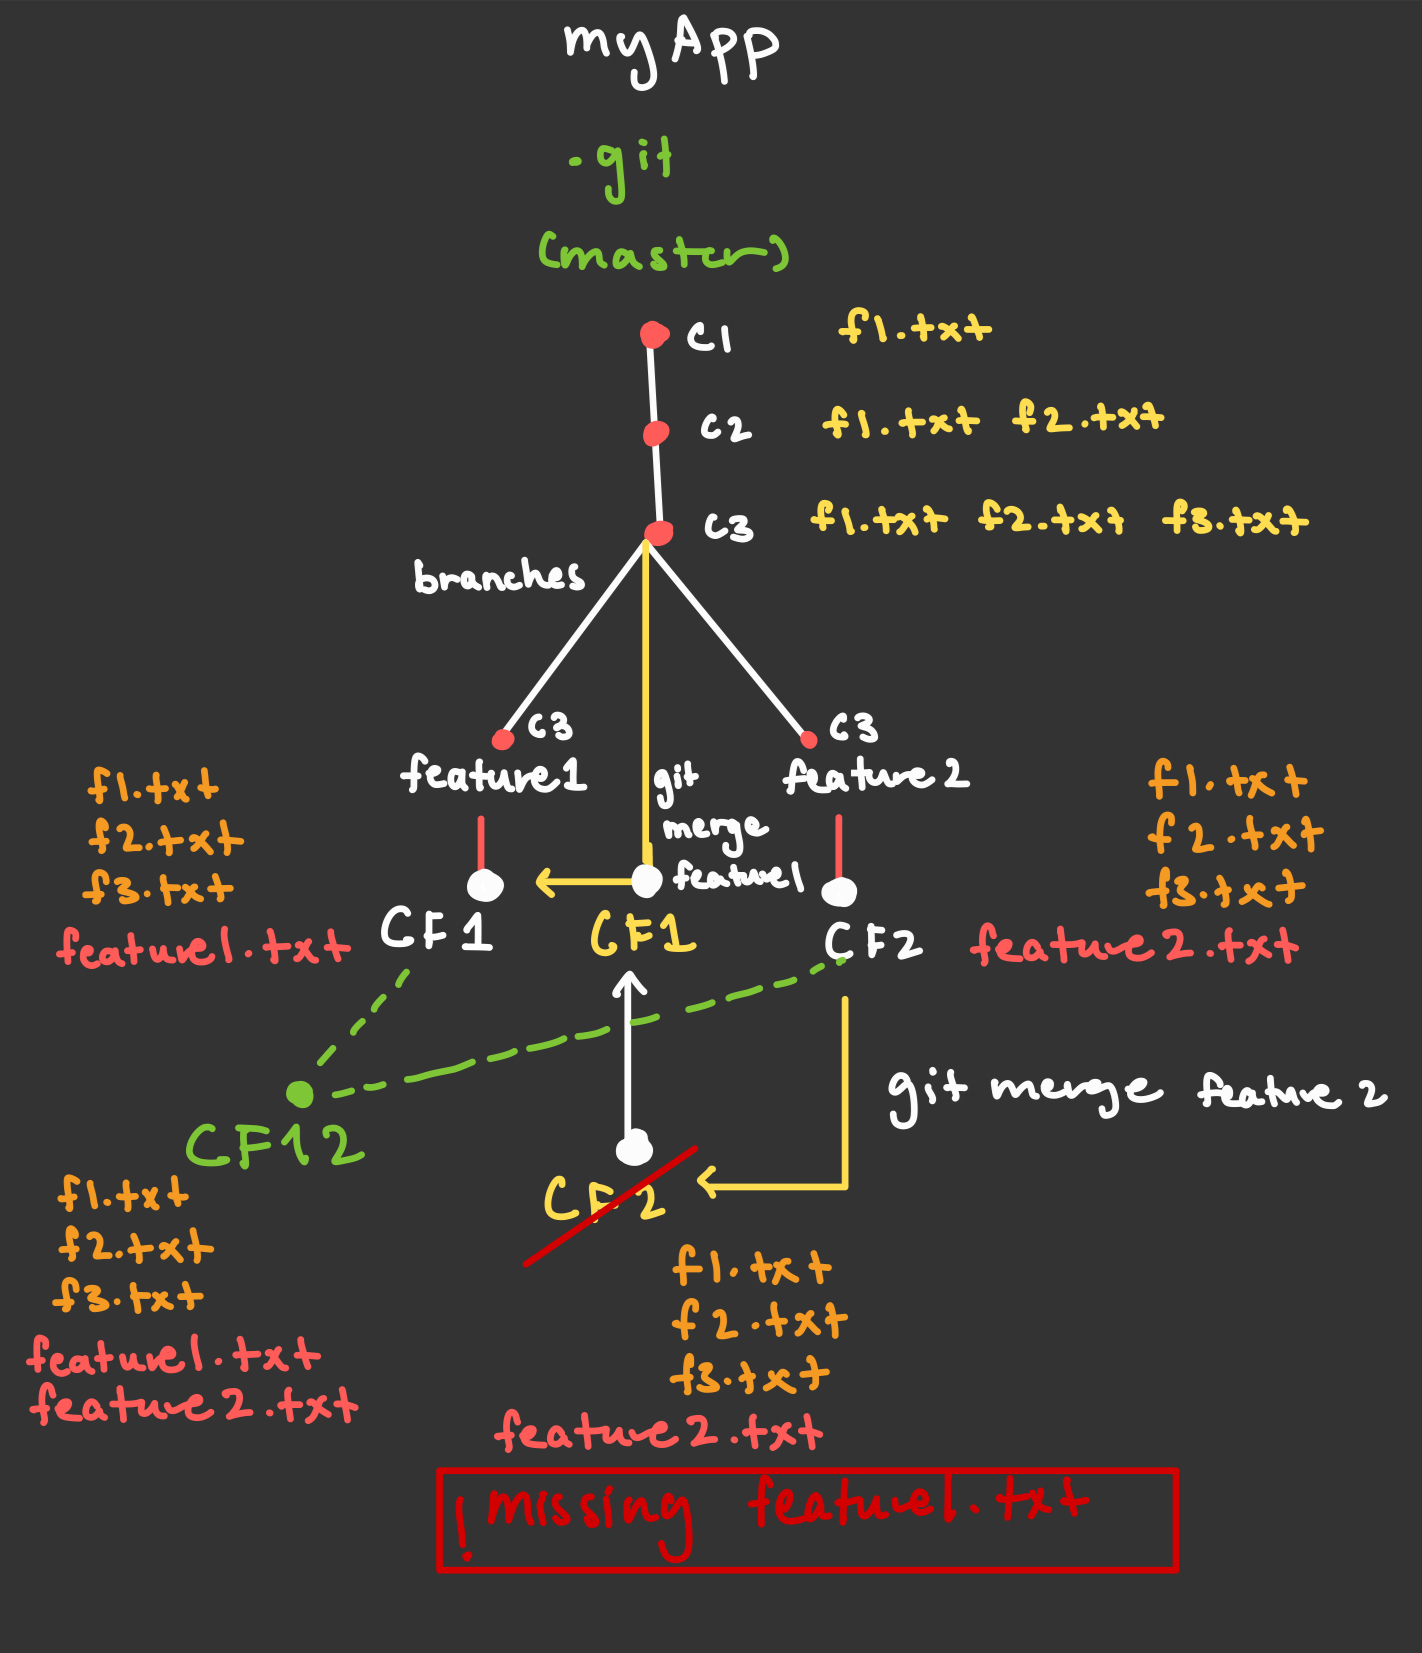 myApp
.git
(master)
C1 f1.txt
C2 f1.txt f2.txt
C3 f1.txt f2.txt f3.txt
branches
C3
feature1
C3
feature2
git
merge
feature1
f1.txt
f2.txt
f3.txt
feature1.txt
CF1
CF1
CF2
f1.txt
f2.txt
f3.txt
feature2.txt
git merge feature2
CF12
f1.txt
f2.txt
f3.txt
feature1.txt
feature2.txt
CF2
f1.txt
f2.txt
f3.txt
feature2.txt
! missing feature1.txt